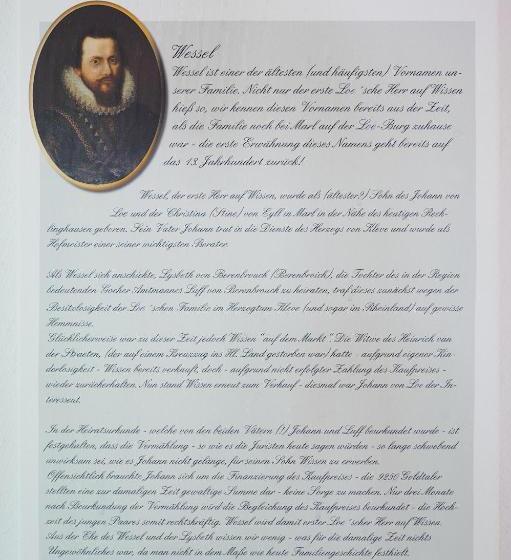 Wessel
Wessel ist einer der ältesten (und häufigsten) Vornamen un-
serer Familie. Nicht nur der erste Loe´sche Herr auf Wissen
hieß so, wir kennen diesen Vornamen bereits aus der Zeit,
als die Familie noch bei Marl auf der Loe-Burg zuhause
war - die erste Erwähnung dieses Namens geht bereits auf
das 13. Jahrhundert zurück!
Wessel, der erste Herr auf Wissen, wurde als (ältester?) Sohn des Johann von
Loe und der Christina (Stine) von Eyll in Marl in der Nähe des heutigen Reck-
linghausen geboren. Sein Vater Johann trat in die Dienste des Herzogs von Kleve und wurde als
Hofmeister einer seiner wichtigsten Berater.
Als Wessel sich anschickte, Lysbeth von Berenbrouck (Berenbroich), die Tochter des in der Region
bedeutenden Gocher Amtmannes Luff von Berenbrouck zu heiraten, traf dieses zunächst wegen der
Besitzlosigkeit der Loe´schen Familie im Herzogtum Kleve (und sogar im Rheinland) auf gewisse
Hemmnisse.
Glücklicherweise war zu dieser Zeit jedoch Wissen "auf dem Markt". Die Witwe des Heinrich van
der Straeten, (der auf einem Kreuzzug ins Hl. Land gestorben war) hatte - aufgrund eigener Kin
derlosigkeit - Wissen bereits verkauft, doch - aufgrund nicht erfolgter Zahlung des Kaufpreises -
wieder zurückerhalten. Nun stand Wissen erneut zum Verkauf - diesmal war Johann von Loe der In-
teressent.
In der Heiratsurkunde - welche von den beiden Vätern (!) Johann und Luff beurkundet wurde - ist
festgehalten, dass die Vermählung - so wie es die Juristen heute sagen würden - so lange schwebend
unwirksam sei, wie es Johann nicht gelänge, für seinen Sohn Wissen zu erwerben.
Offensichtlich brauchte Johann sich um die Finanzierung des Kaufpreises - die 9250 Goldtaler
stellten eine zur damaligen Zeit gewaltige Summe dar - keine Sorge zu machen. Nur drei Monate
nach Beurkundung der Vermählung wird die Begleichung des Kaufpreises beurkundet - die Hoch-
zeit des jungen Paares somit rechtskräftig. Wessel wird damit erster Loe´scher Herr auf Wissen.
Aus der Ehe des Wessel und der Lysbeth wissen wir wenig - was für die damalige Zeit nichts
Ungewöhnliches war, da man nicht in dem Maße wie heute Familiengeschichte festhielt.